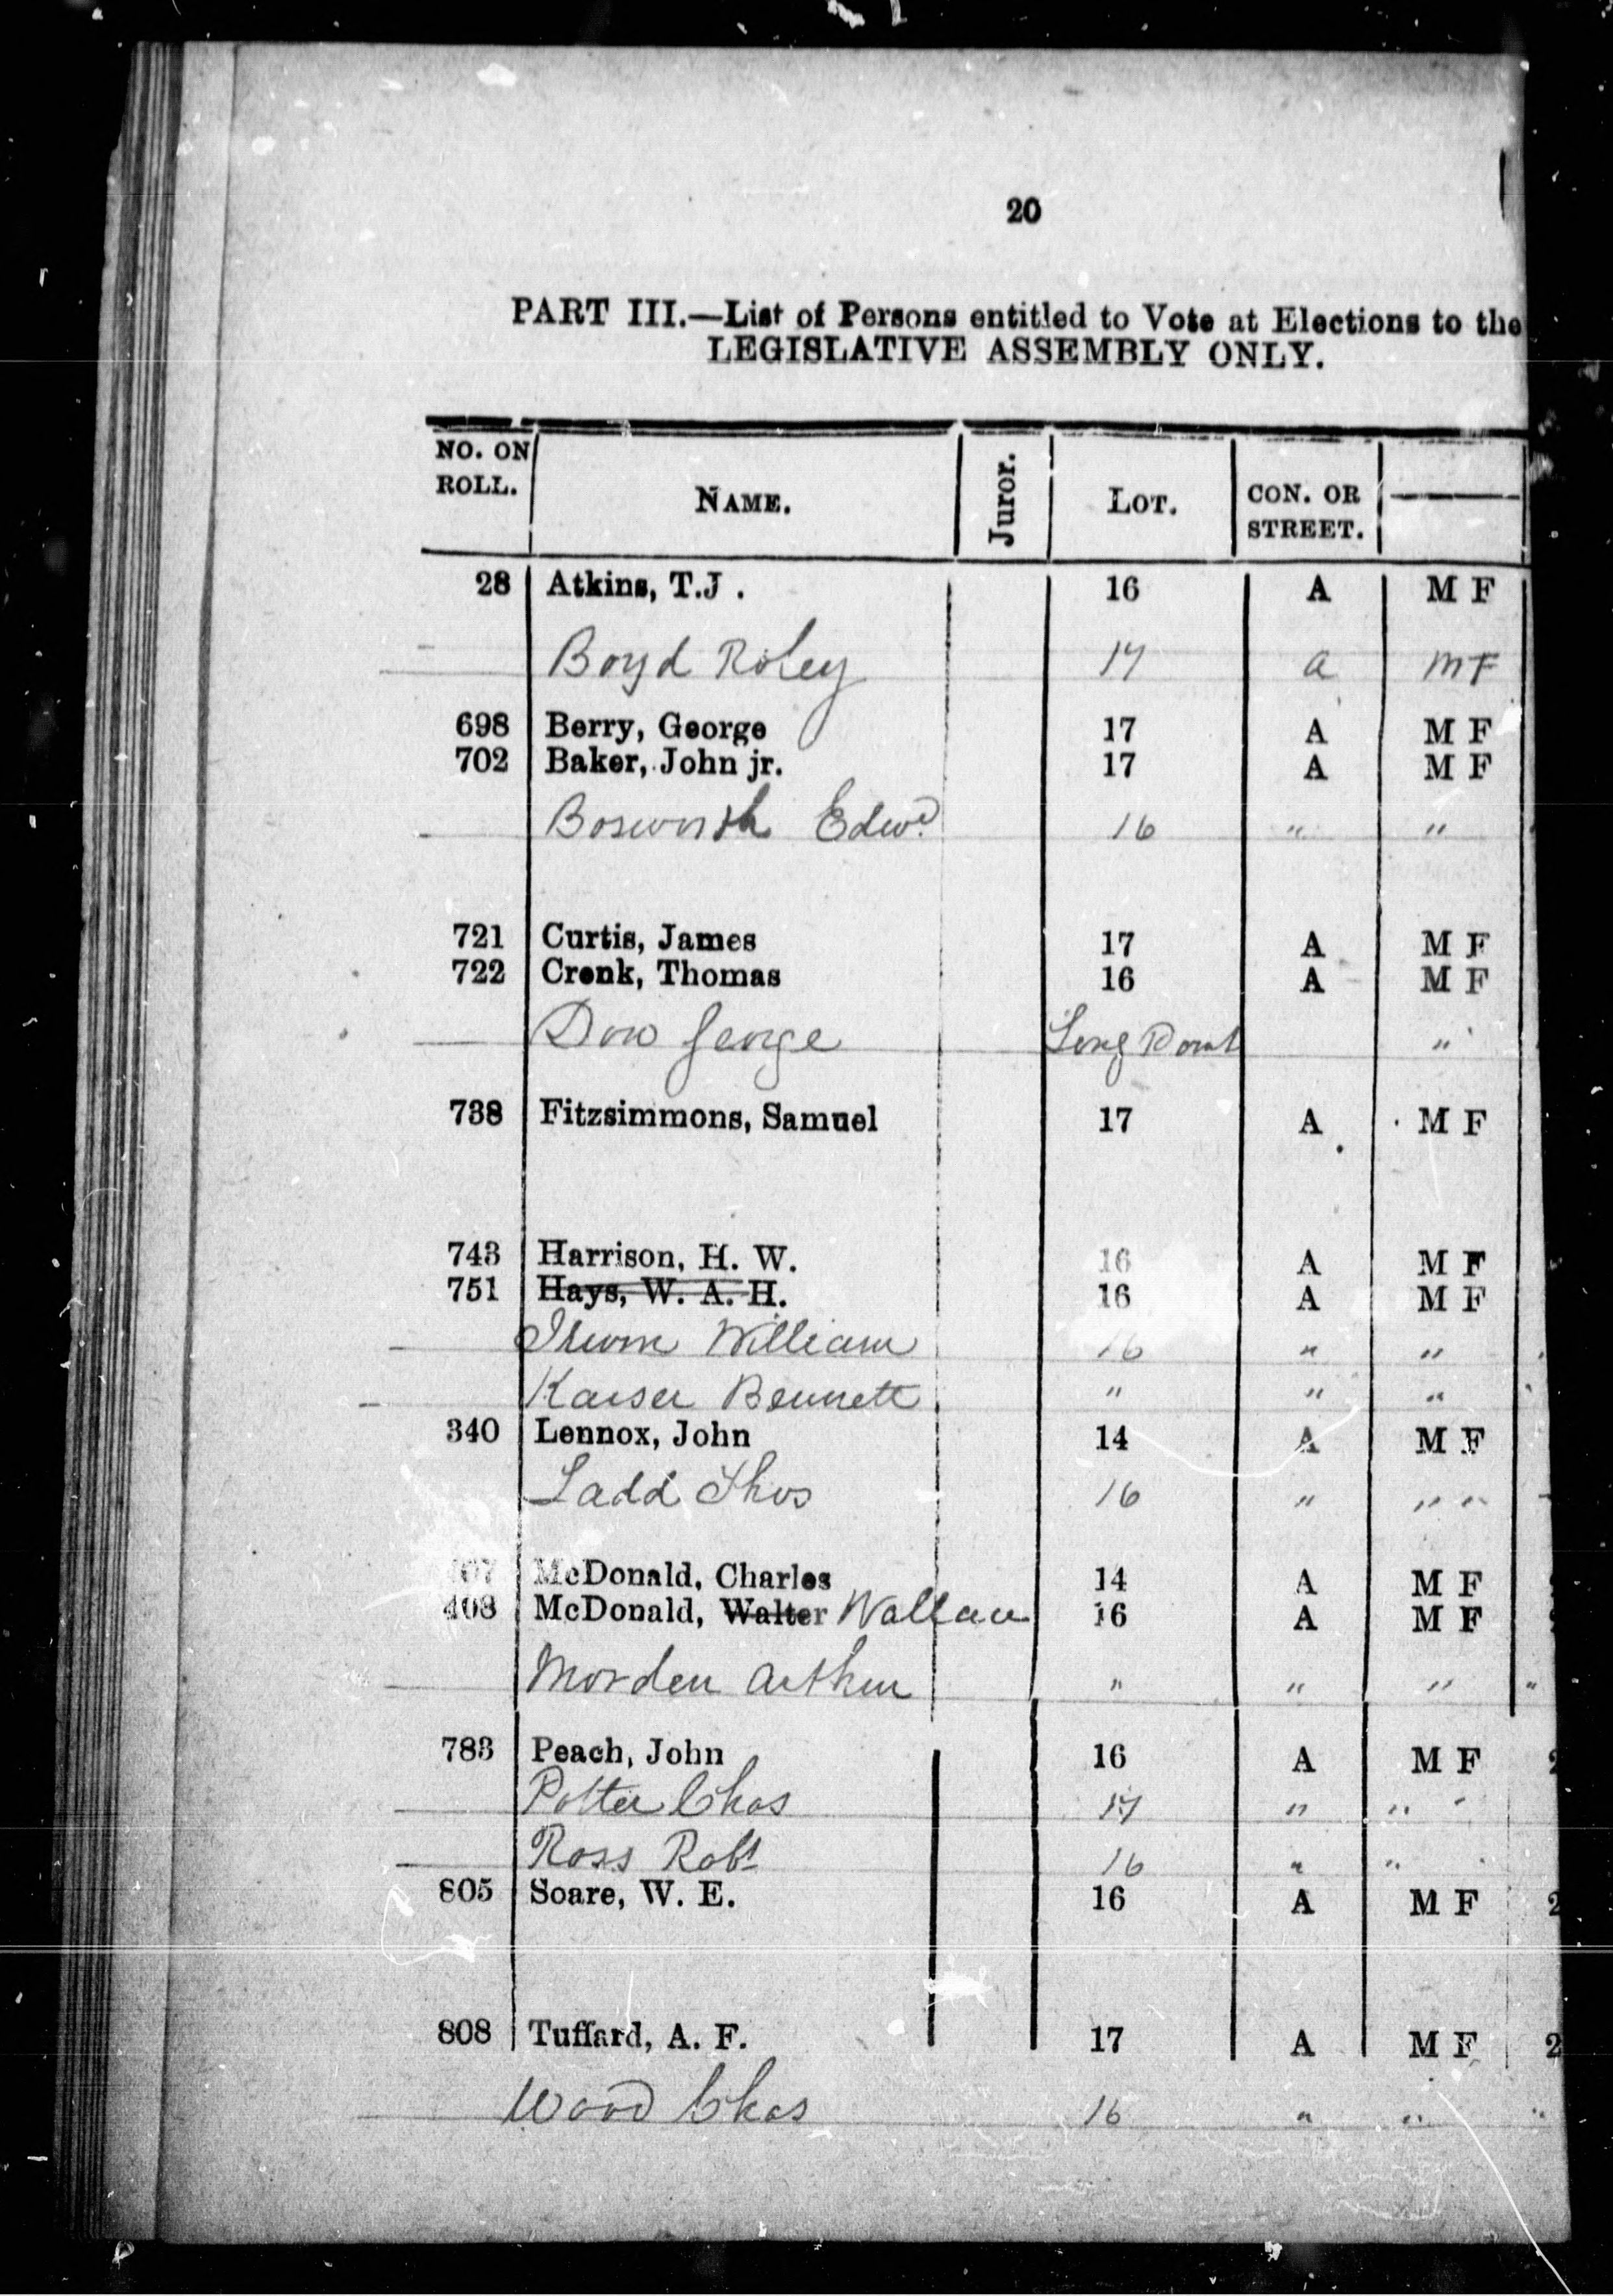 20
PART III.—List of Persons entitled to Vote at Elections to the
LEGISLATIVE ASSEMBLY ONLY.
NO. ON ROLL. NAME. Juror. LOT. CON. OR STREET.
28 Atkins, T.J. 16 A M F
Boyd Roley 17 a M F
698 Berry, George 17 A M F
702 Baker, John jr. 17 A M F
Bosworth Edwd 16 " "
721 Curtis, James 17 A M F
722 Cronk, Thomas 16 A M F
Dow George Long Point "
738 Fitzsimmons, Samuel 17 A M F
743 Harrison, H. W. 16 A M F
751 Hays, W. A. H. 16 A M F
William 16 " "
Kaiser Bennett " " "
340 Lennox, John 14 A M F
Ladd Thos 16 " " "
McDonald, Charles 14 A M F
408 McDonald, Walter Wallace 16 A M F
Morden Arthur " " " "
783 Peach, John 16 A M F 2
Potter Chas 17 " " "
Ross Robt 16 " "
805 Soare, W. E. 16 A M F 2
808 Tuffard, A. F. 17 A M F 2
Wood Chas 16 " " "